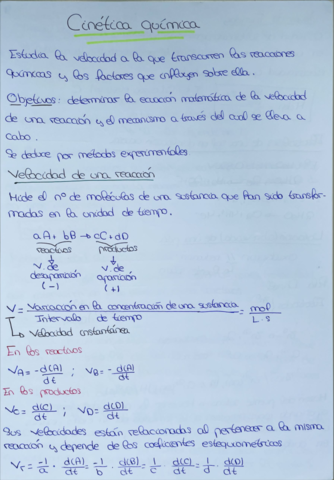 Cinética química
Estudia la velocidad a la que transcurren las reacciones
químicas y los factores que influyen sobre ella.
Objetivos: determinar la ecuación matemática de la velocidad
de una reacción y el mecanismo a través del cual se lleva a
cabo.
Se deduce por métodos experimentales
Velocidad de una reacción
Mide el nº de moléculas de una sustancia que han sido transfor-
madas en la unidad de tiempo.
aA + bB → cC + dD
reactivos productos
v. de desaparición (-) v. de aparición (+)
V = Variación en la concentración de una sustancia / Intervalo de tiempo = mol / L · s
↳ Velocidad instantánea
En los reactivos
VA = -d(A)/dt ; VB = -d(A)/dt
En los productos
Vc = d(C)/dt ; VD = d(D)/dt
Sus velocidades están relacionadas al pertenecer a la misma
reacción y depende de los coeficientes estequiométricos
Vr = -1/a · d(A)/dt = -1/b · d(B)/dt = 1/c · d(C)/dt = 1/d · d(D)/dt